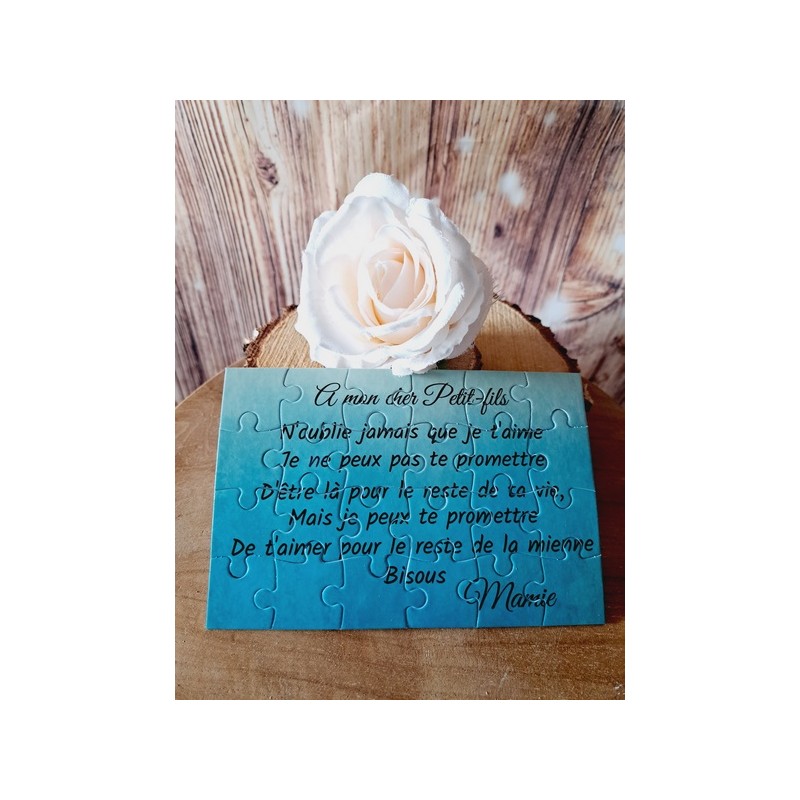 A mon cher Petit-fils
N'oublie jamais que je t'aime
Je ne peux pas te promettre
D'être là pour le reste de ta vie,
Mais je peux te promettre
De t'aimer pour le reste de la mienne
Bisous
Mamie